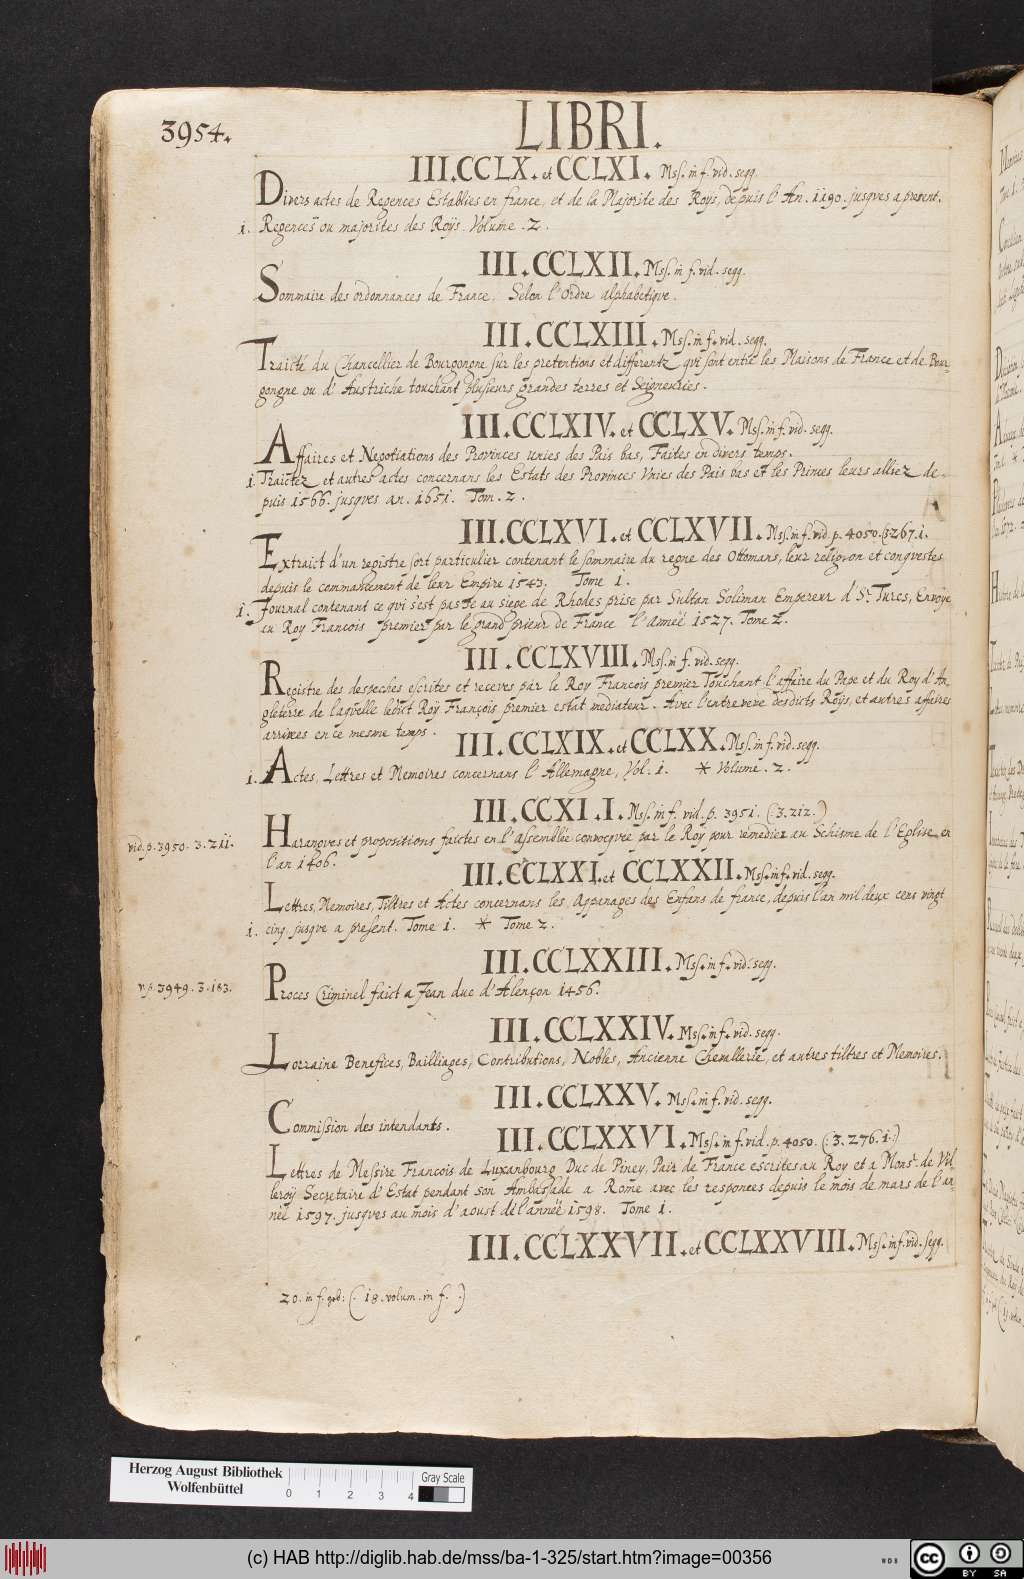 3954.
LIBRI.
III.CCLX. et CCLXI. Mſſ. in f. vid. seqq.
Divers actes de Regences Establies en france, et de la Majorité des Roys, depuis l'An. 1190. jusques a present.
1. Regences ou majorites des Roys. Volume. 2.
III.CCLXII. Mſſ. in f. vid. seqq.
Sommaire des ordonnances de France, Selon l'Ordre alphabetique.
III.CCLXIII. Mſſ. in f. vid. seqq.
Traicté du Chancellier de Bourgongne sur les pretentions et differentz qui sont entre les Maisons de France et de Bour-
gongne ou d'Austriche touchant plusieurs grandes terres et Seigneuries.
III.CCLXIV. et CCLXV. Mſſ. in f. vid. seqq.
Affaires et Negotiations des Provinces unies des Pais bas, Faites en divers temps.
1. Traictez et autres actes concernans les Estats des Provinces Vnies des Pais bas et les Princes leurs alliez de-
puis 1566. jusques an. 1651. Tom. 2.
III.CCLXVI. et CCLXVII. Mſſ. in f. vid. p. 4050. (3267.1.
Extraict d'un registre fort particulier contenant le sommaire du regne des Ottomans, leur religion et conquestes
depuis le commancement de leur Empire 1543. Tome 1.
1. Journal contenant ce qui s'est passé au siege de Rhodes prise par Sultan Soliman Empereur d'Sr. Turcs, Envoye
eu Roy Francois premier par le grand prieur de France l'année 1527. Tome 2.
III.CCLXVIII. Mſſ. in f. vid. seqq.
Registre des despeches escrites et receves par le Roy Francois premier Touchant l'affaire du Pape et du Roy d'An-
gleterre de laquelle ledict Roy François premier estat mediateur. Avec l'entreveve desdicts Roys, et autres affaires
arrivees en ce mesme temps.
III.CCLXIX. et CCLXX. Mſſ. in f. vid. seqq.
1. Actes, Lettres et Memoires concernans l'Allemagne, Vol. 1. * Volume. 2.
III.CCXI.I. Mſſ. in f. vid. p. 3951. (3.212.)
vid. p. 3950. 3.211.
Harangves et propositions faictes en l'assemblée convoqvée par le Roy pour remedier au Schisme de l'Eglise en
l'an 1406.
III.CCLXXI. et CCLXXII. Mſſ. in f. vid. seqq.
Lettres, Memoires, Tiltres et Actes concernans les Appanages des Enfans de france, depuis l'an mil deux cens vingt
1. cinq jusque a present. Tome 1. * Tome 2.
III.CCLXXIII. Mſſ. in f. vid. seqq.
v. p. 3949. 3.183.
Proces Criminel faict a Jean duc d'Alençon 1456.
III.CCLXXIV. Mſſ. in f. vid. seqq.
Lorraine Benefices, Bailliages, Contributions, Nobles, Ancienne Chevallerie, et autres tiltres et Memoires.
III.CCLXXV. Mſſ. in f. vid. seqq.
Commission des intendants.
III.CCLXXVI. Mſſ. in f. vid. p. 4050. (3.276.1.)
Lettres de Messire Francois de Luxanbourg Duc de Piney, Pair de France escrites au Roy et a Monsr. de Vil-
leroy Secretaire d'Estat pendant son Ambassade a Rome avec les responces depuis le mois de mars de l'an-
née 1597. jusques au mois d'aoust de l'année 1598. Tome 1.
III.CCLXXVII. et CCLXXVIII. Mſſ. in f. vid. seqq.
20. in f. (18. volum. in f.)
Herzog August Bibliothek
Wolfenbüttel
0 1 2 3 4
Gray Scale
(c) HAB http://diglib.hab.de/mss/ba-1-325/start.htm?image=00356
WDB
cc BY SA